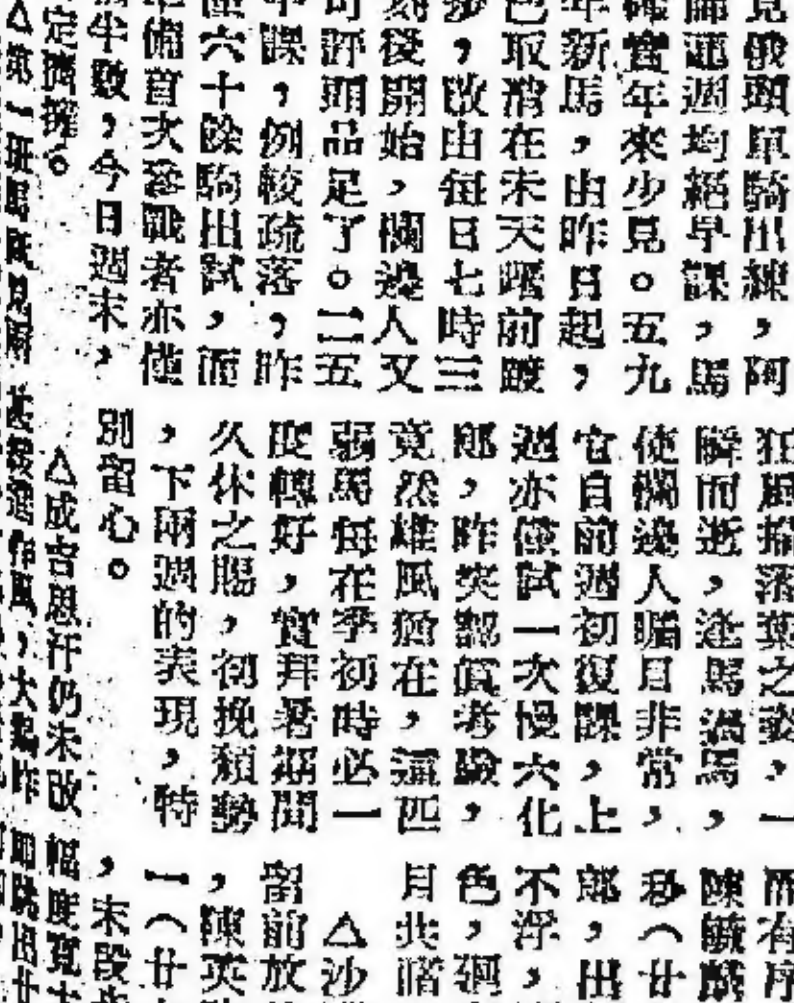 見俄頭單騎出練，阿
師認週均絕早課，馬
確實年來少見。五九
年新馬，由昨日起，
色取消在未天曙前踱
步，改由每日七時三
刻後開始，欄邊人又
可評頭品足了。二五
早課，例較疏落，昨
僅六十餘駒出試，而
準備首次參戰者亦僅
半數，今日週末，
定擠擁。
狂風掃落葉之姿，一
瞬而逝，逢馬過馬，
使欄邊人矚目非常，
它自前週初復課，上
週亦僅試一次慢六化
郎，昨突認真考驗，
竟然雄風猶在，這匹
弱馬每在季初時必一
度轉好，實拜暑期間
久休之賜，初挽頹勢
，下兩週的表現，特
別留心。
△成吉思汗仍未改
而有序
陳毓麟
秒（廿
郎，出
不浮，
色，
月共
△沙
留前放
，陳英
一（廿
，末段
幅度寬大
即跳出廿
△第一班馬
作風，大鵝昨